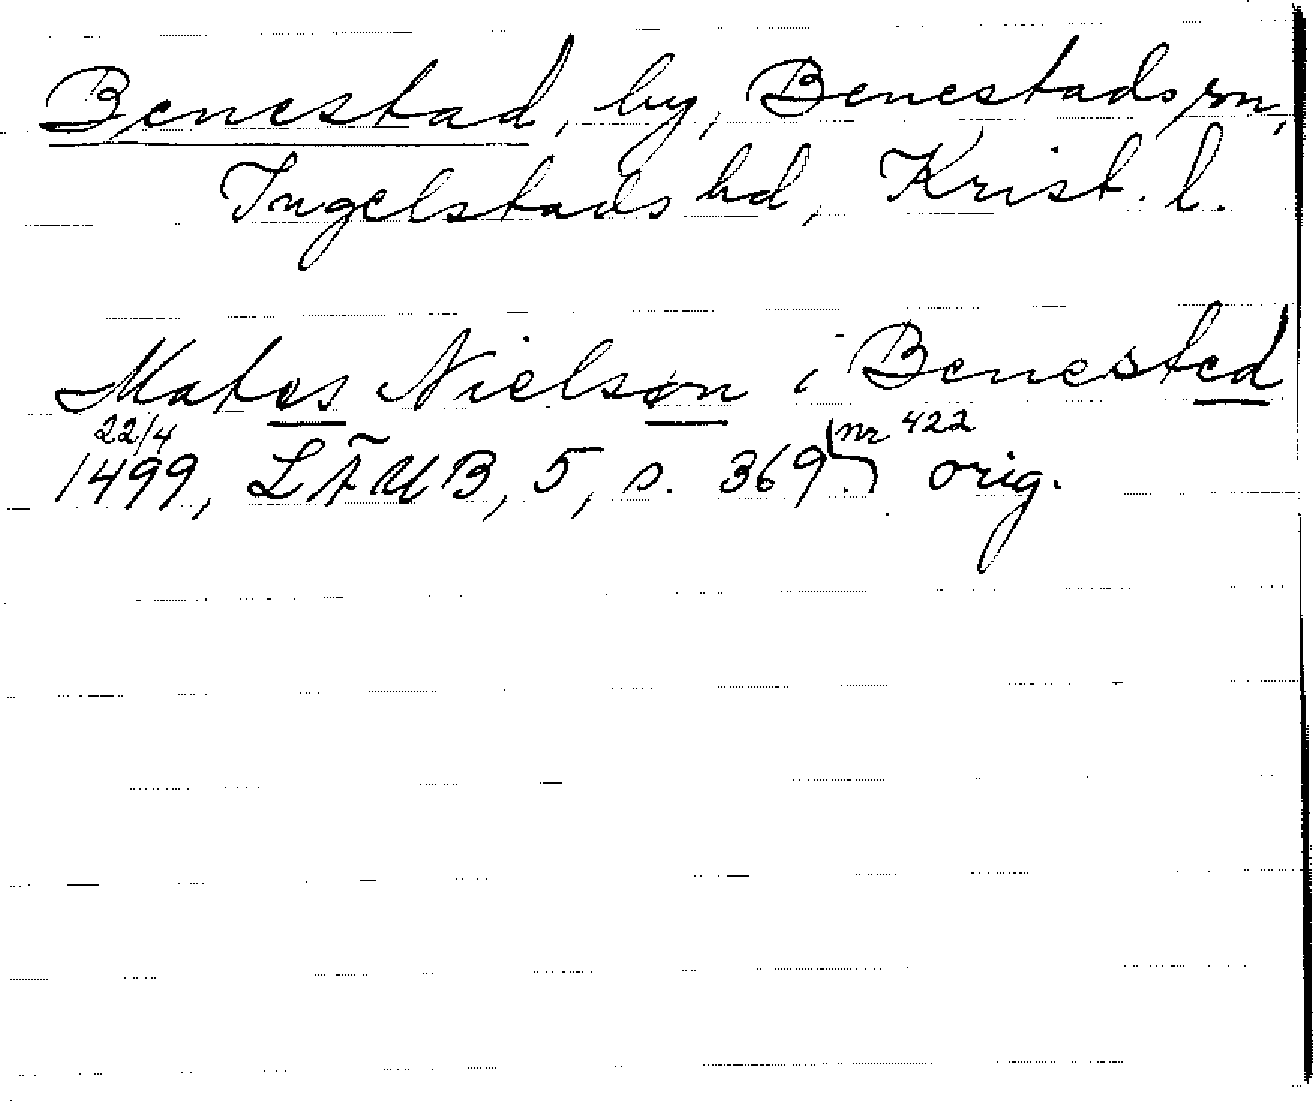 Benestad, by, Benestads sn,
Ingelstads hd, Krist. l.
Mates Nielsøn i Bensted
22/4 nr 422
1499, LÄUB, 5, s. 369. orig.